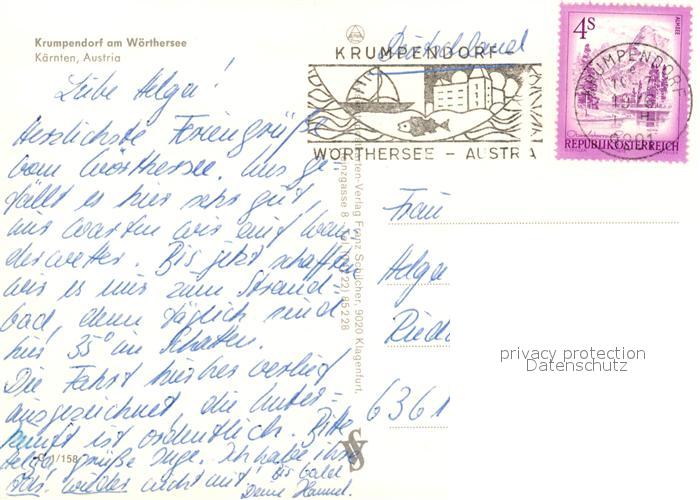 Krumpendorf am Wörthersee
Kärnten, Austria
Liebe Helga!
Herzlichste Feriengrüße
vom Wörthersee. Uns ge-
fällt es hier sehr gut,
nur warten wir auf Wan-
derwetter. Bis jetzt schafften
wir es nur zum Strand-
bad, denn täglich sind
hier 35° im Schatten.
Die Fahrt hierher verlief
ausgezeichnet, die Unter-
kunft ist ordentlich. Bitte
Helga grüße Inge. Ich habe ihre
wieder nicht mit! Bis bald
Deine
1/158
Deutschland
KRUMPENDORF-
WÖRTHERSEE - AUSTRIA
4S
ALMSEE
REPUBLIK ÖSTERREICH
KRUMPENDORF
Verlag Franz Schilcher, 9020 Klagenfurt,
85228
Frau
Helga
Ried
6361
privacy protection
Datenschutz